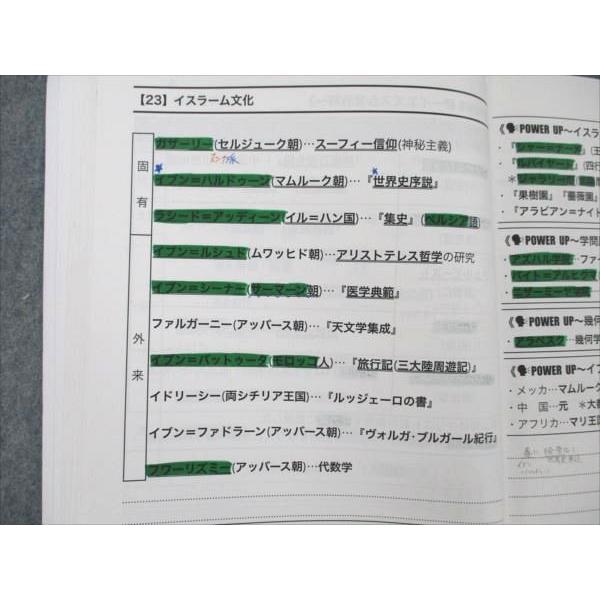 【23】イスラーム文化
固有
ガザーリー(セルジューク朝)…スーフィー信仰(神秘主義)
イブン=ハルドゥーン(マムルーク朝)…『世界史序説』
ラシード=アッディーン(イル=ハン国)…『集史』(ペルシア語)
外来
イブン=ルシュド(ムワッヒド朝)…アリストテレス哲学の研究
イブン=シーナー(サーマーン朝)…『医学典範』
ファルガーニー(アッバース朝)…『天文学集成』
イブン=バットゥータ(モロッコ人)…『旅行記(三大陸周遊記)』
イドリーシー(両シチリア王国)…『ルッジェーロの書』
イブン=ファドラーン(アッバース朝)…『ヴォルガ・ブルガール紀行』
フワーリズミー(アッバース朝)…代数学
《 POWER UP〜イスラ
・『シャー=ナーメ』(王
・『ルバイヤート』(四行
・『果樹園』『薔薇園』
・『アラビアン=ナイト
《 POWER UP〜学問
・アズハル学院…ファー
・バイト=アルヒクマ
・ニザーミーヤ学院
《 POWER UP〜幾何
・アラベスク…幾何学
《 POWER UP〜イブ
・メッカ…マムルーク
・中　国…元　＊大都
・アフリカ…マリ王国